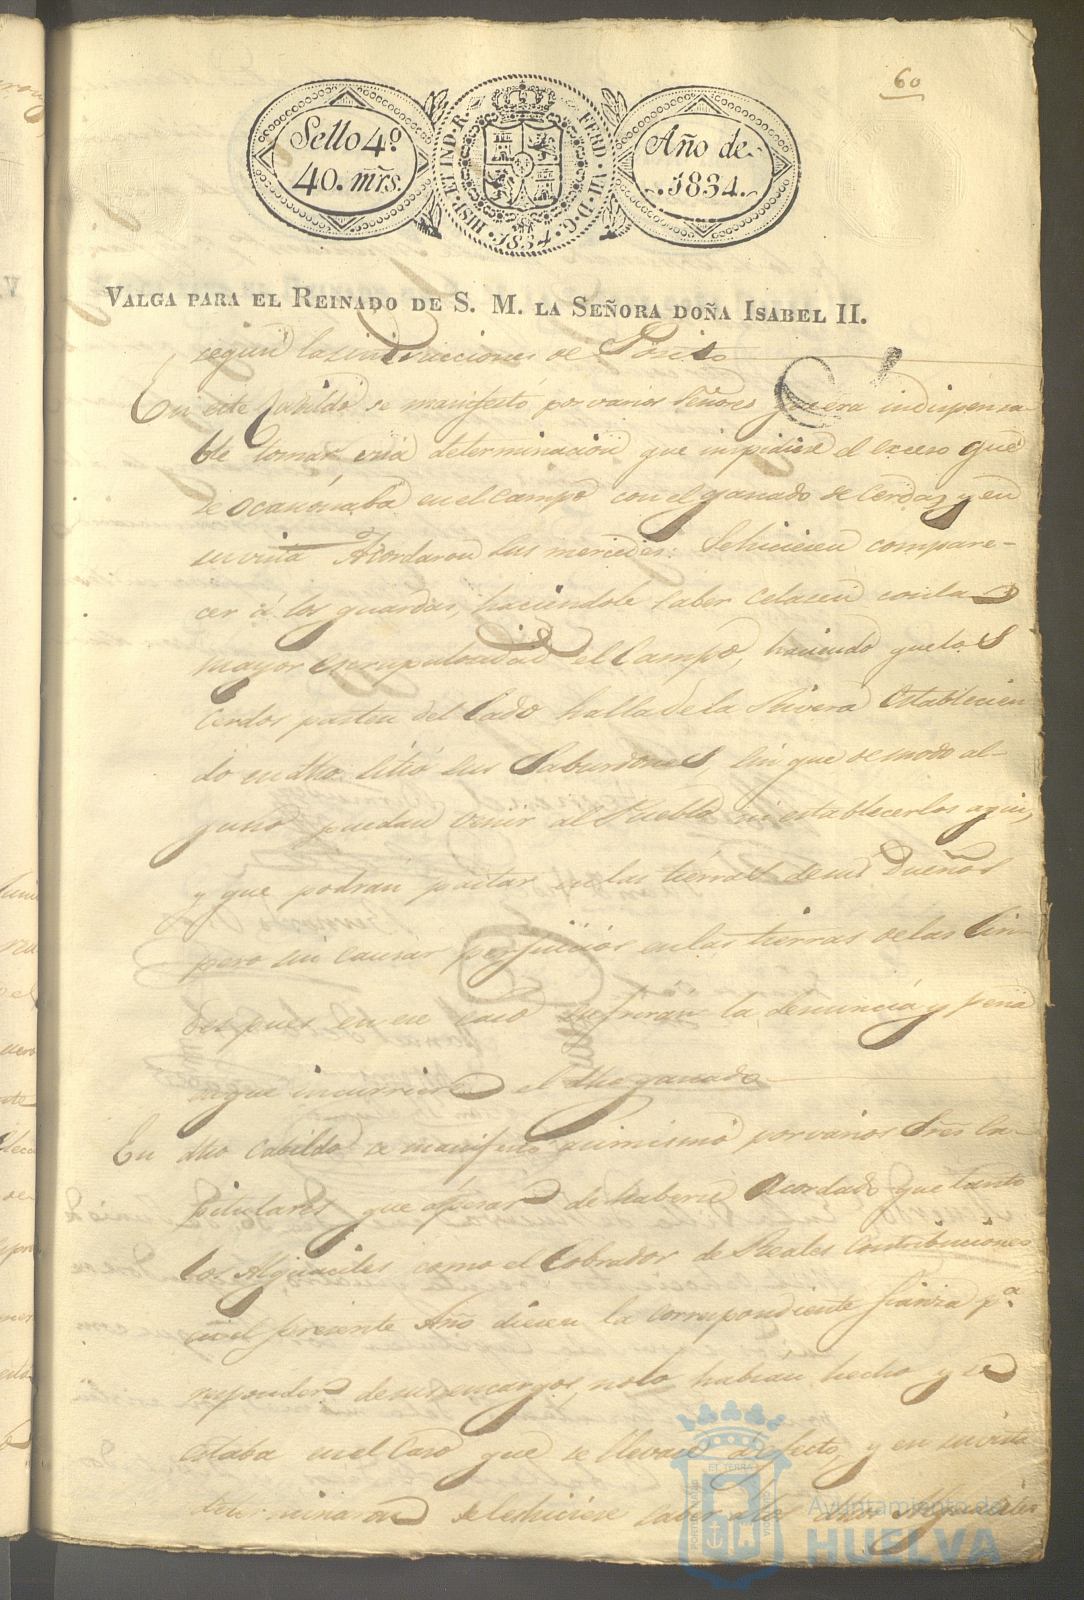 60
Sello 4º
40. mrs.
HISP. ET IND. R. FERD. VII. D. G. 1834
Año de
1834.
VALGA PARA EL REINADO DE S. M. LA SEÑORA DOÑA ISABEL II.
segun las instrucciones de Posito
En este Cabildo se manifestó por varios Señores que era indispensa-
ble tomar una determinacion que impidiese el exceso que
se ocasionaba en el campo con el ganado de Cerda, y en
su vista Acordaron sus mercedes: Se hiciesen compare-
cer á los guardas, haciendole saber celasen con la
mayor escrupulosidad el Campo, haciendo que los
Cerdos pasten del lado halla de la Rivera Establecien
do en dho sitio sus Saburdones, sin que de modo al-
guno puedan venir al Pueblo ni establecerlos aqui,
y que podran pastar en las tierras de sus Dueños
pero sin causar perjuicios en las tierras de las Lin-
des pues en ese caso sufriran la denuncia y pena
a que incurriere el dho ganado
En dho Cabildo se manifesto asimismo por varios Sres Ca-
pitulares que apesar de haberse Acordado que tanto
los Alguaciles como el Cobrador de Reales Contribuciones
en el presente Año diesen la correspondiente fianza pª
responder de sus encargos, no lo habian hecho y se
estaba en el Caso que se llevase a efecto, y en su vista
determinaron se le hiciese saber a los dhos Alguaciles
Ayuntamiento de
HUELVA